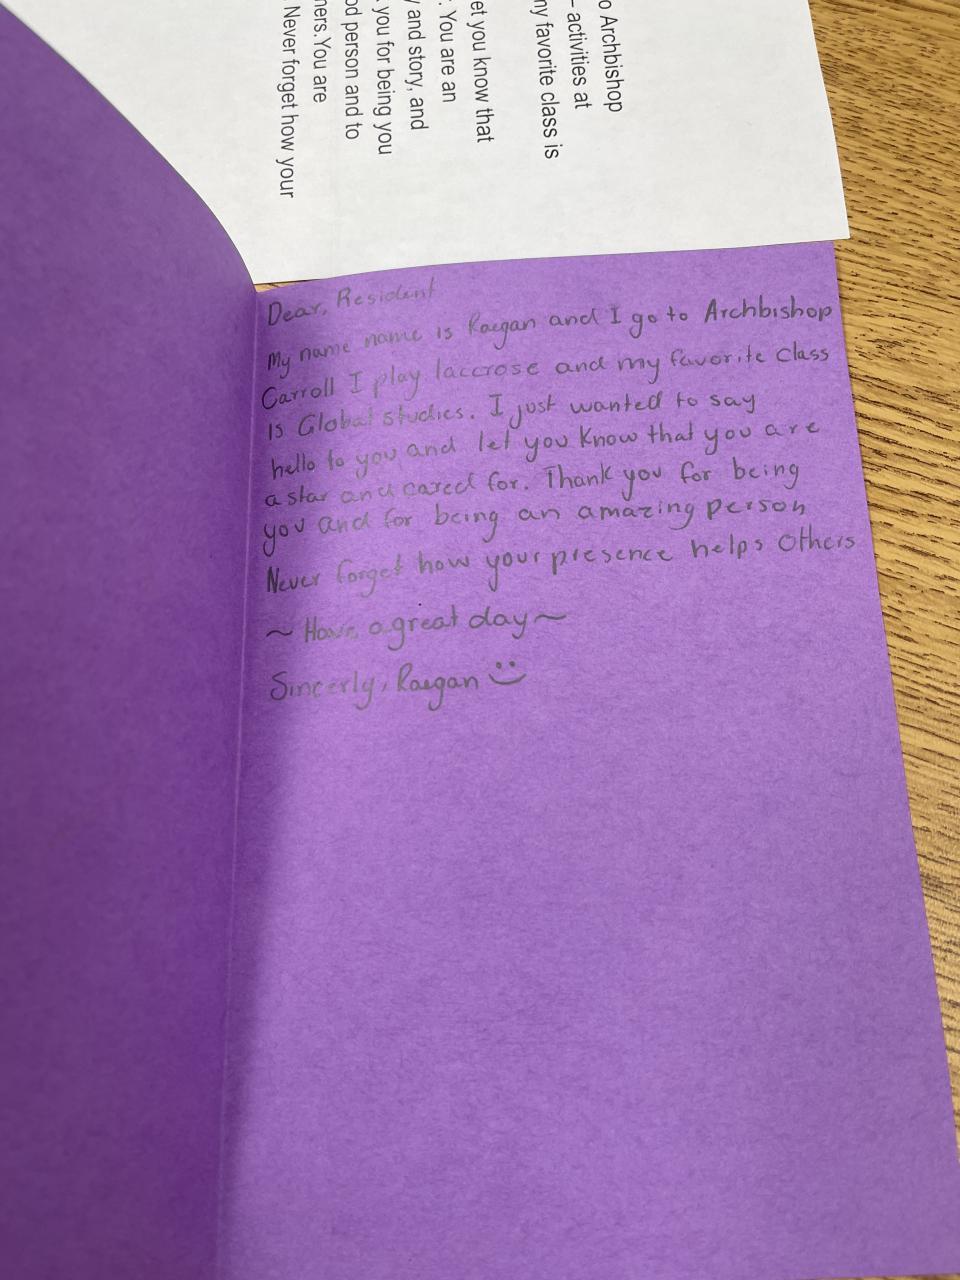 o Archbishop
– activities at
ny favorite class is
et you know that
. You are an
y and story, and
you for being you
od person and to
ners. You are
Never forget how your
Dear, Resident
My name name is Raegan and I go to Archbishop
Carroll I play laccrose and my favorite class
is Global studies. I just wanted to say
hello to you and let you know that you are
a star and cared for. Thank you for being
you and for being an amazing person
Never forget how your presence helps others
~ Have a great day ~
Sincerly, Raegan